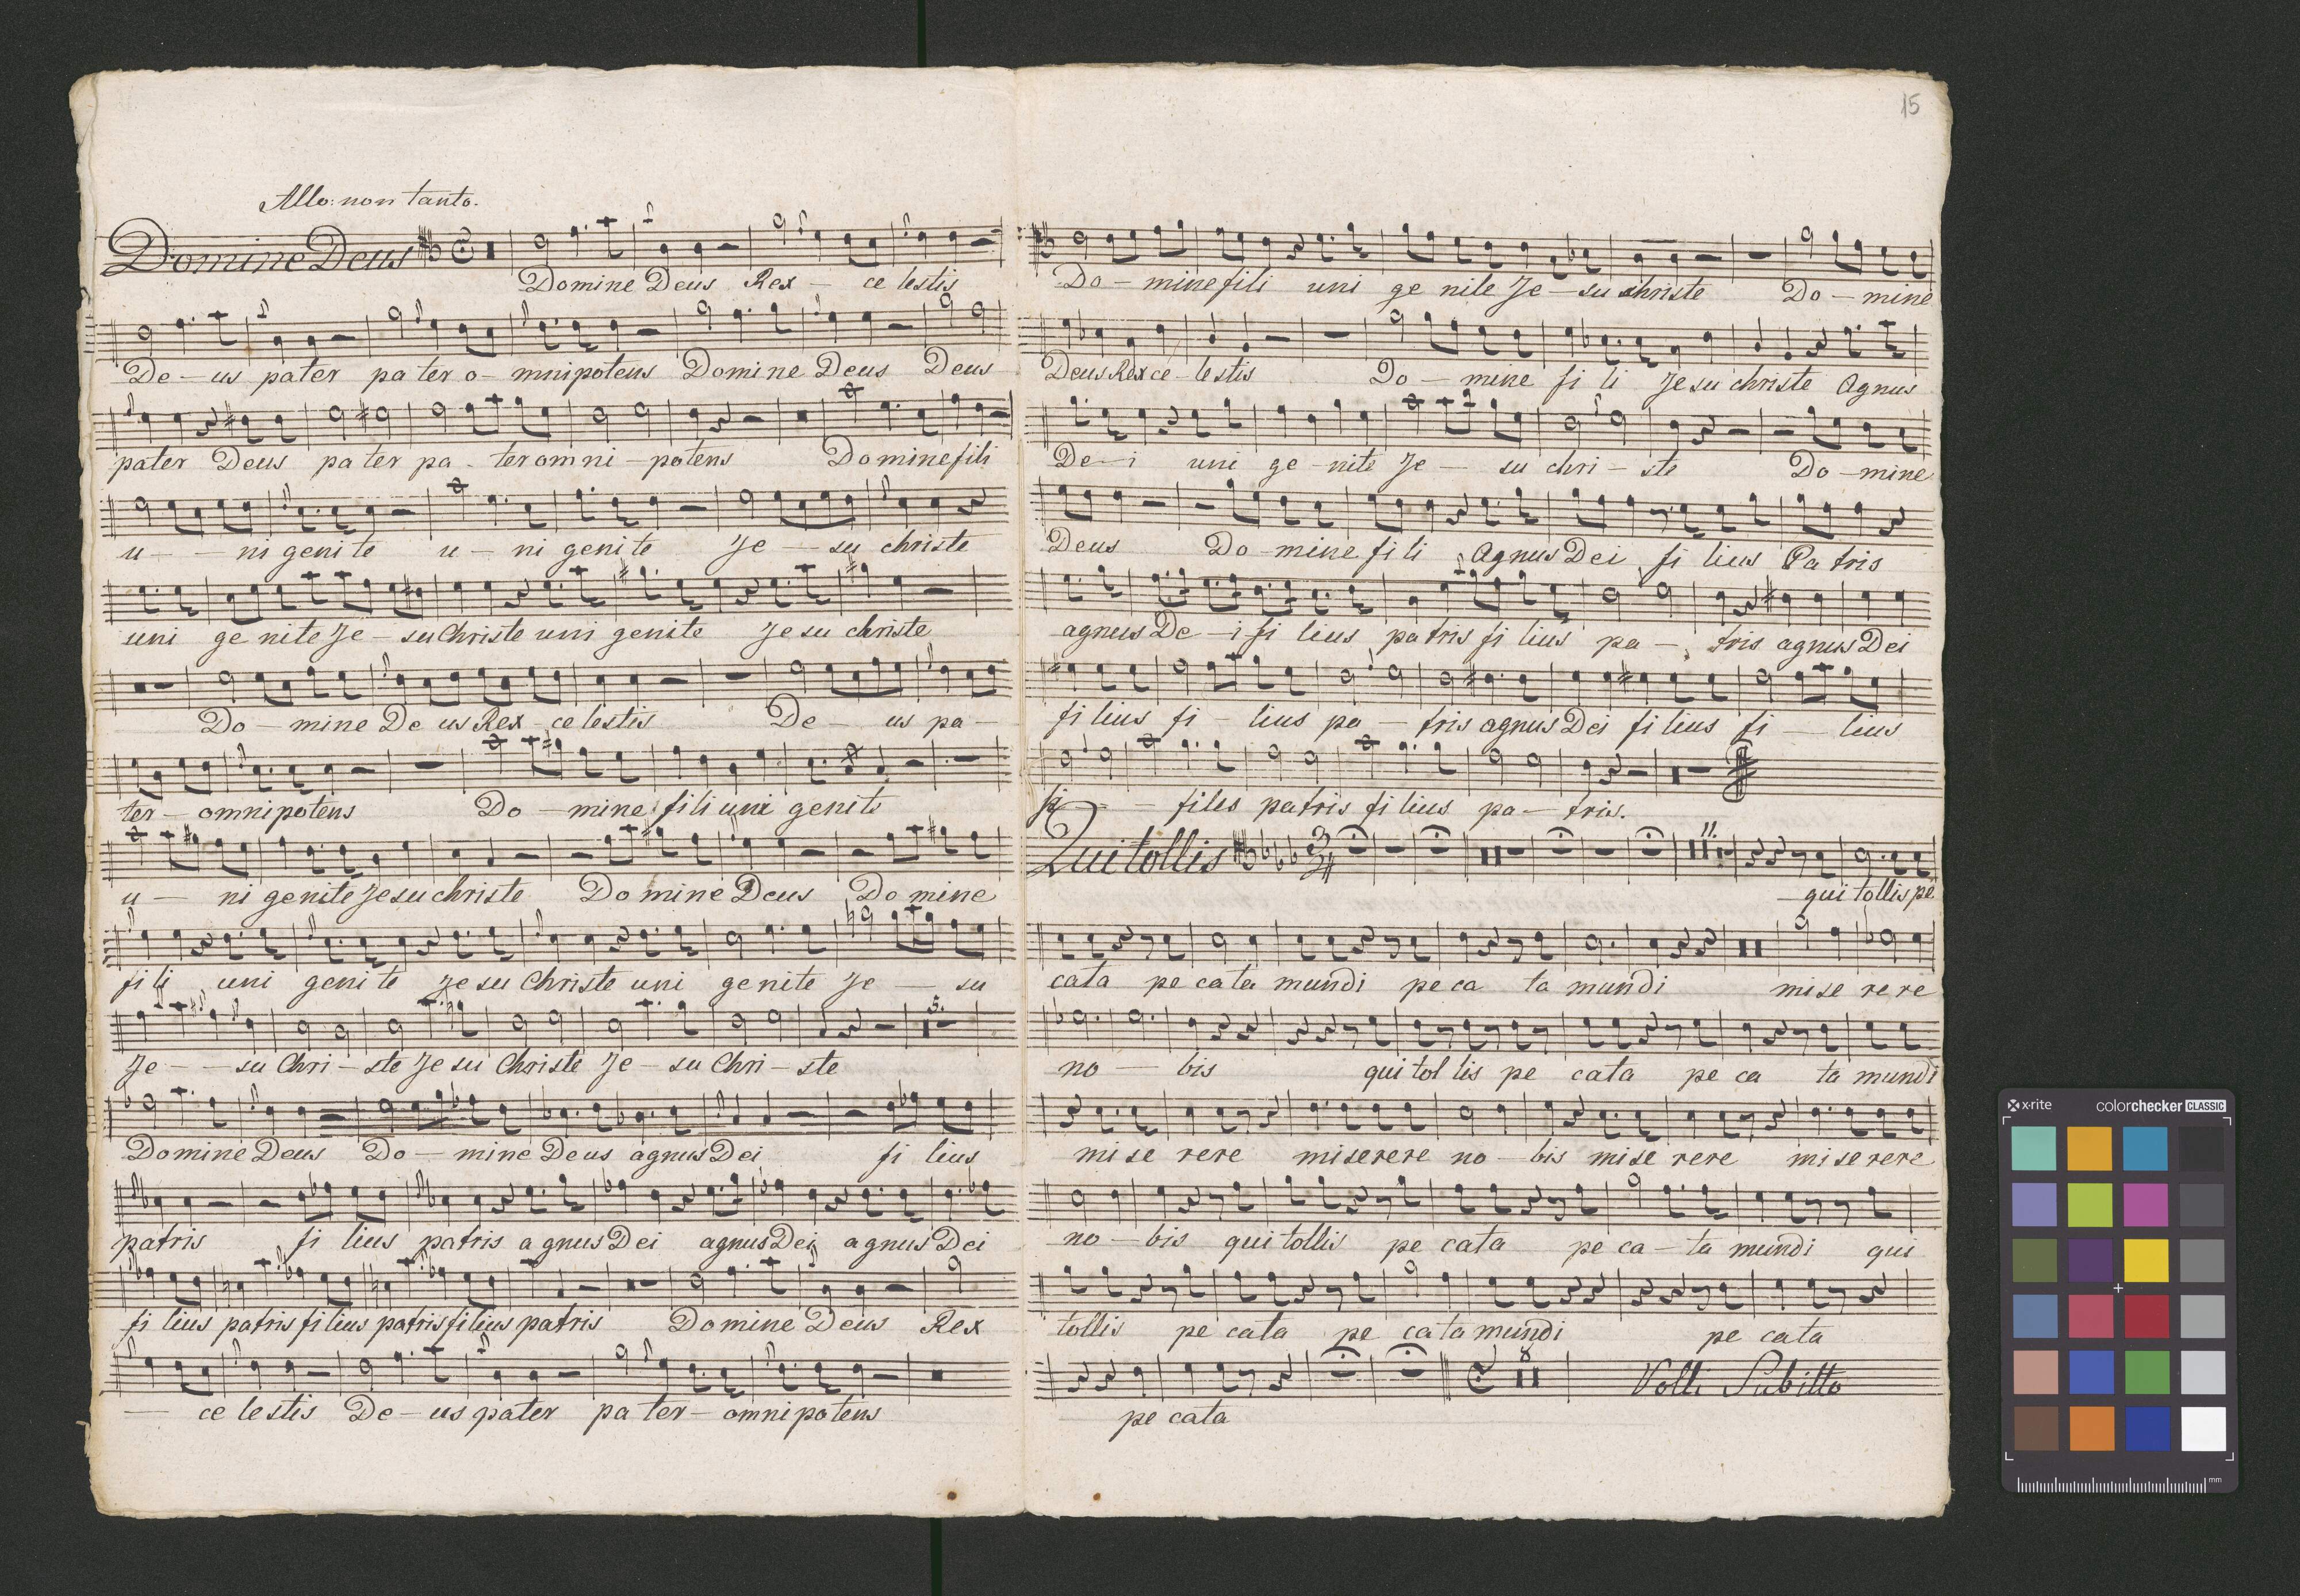 Allo: non tanto.
Domine Deus
Domine Deus Rex - ce lestis
De - us pater pa ter o - mnipotens Domine Deus Deus
pater Deus pa ter pa - ter omni - potens Domine fili
u - - ni geni te u - ni geni te Je - su christe
uni ge nite Je - su Christe uni genite Je su christe
Do - mine De us Rex - ce lestis De - us pa -
ter - omnipotens Do - mine fili uni genite
u - ni genite Jesu christe Do mine Deus Do mine
fi li uni geni te Je su Christe uni ge nite Je - su
Je - - su Chri - ste Je su Christe Je - su Chri - ste
5.
Domine Deus Do - mine Deus agnus Dei fi lius
patris fi lius patris a gnus Dei agnus Dei agnus Dei
fi lius patris fi lius patris fi lius patris Domine Deus Rex
- ce lestis De - us pater pa ter - omni potens
15
Do - mine fili uni ge nite Je - su christe Do - mine
Deus Rex ce - lestis Do - mine fi li Je su christe Agnus
De - i uni ge - nite Je - su chri - ste Do - mine
Deus Do - mine fi li Agnus Dei fi lius Pa tris
agnus De - i fi lius patris fi lius pa - tris agnus Dei
fi lius fi - lius pa - tris agnus Dei fi lius fi - lius
fi - - files patris fi lius pa - tris.
Qui tollis
3/4
11.
- qui tollis pe
cata pe cata mundi pe ca ta mundi mise re re
no - bis qui tol lis pe cata pe ca ta mundi
mi se rere miserere no - bis mise rere mi se rere
no - bis qui tollis pe cata pe ca - ta mundi qui
tollis pe cata pe cata mundi pe cata
8
Volti Subitto
pe cata
x-rite colorchecker CLASSIC
mm